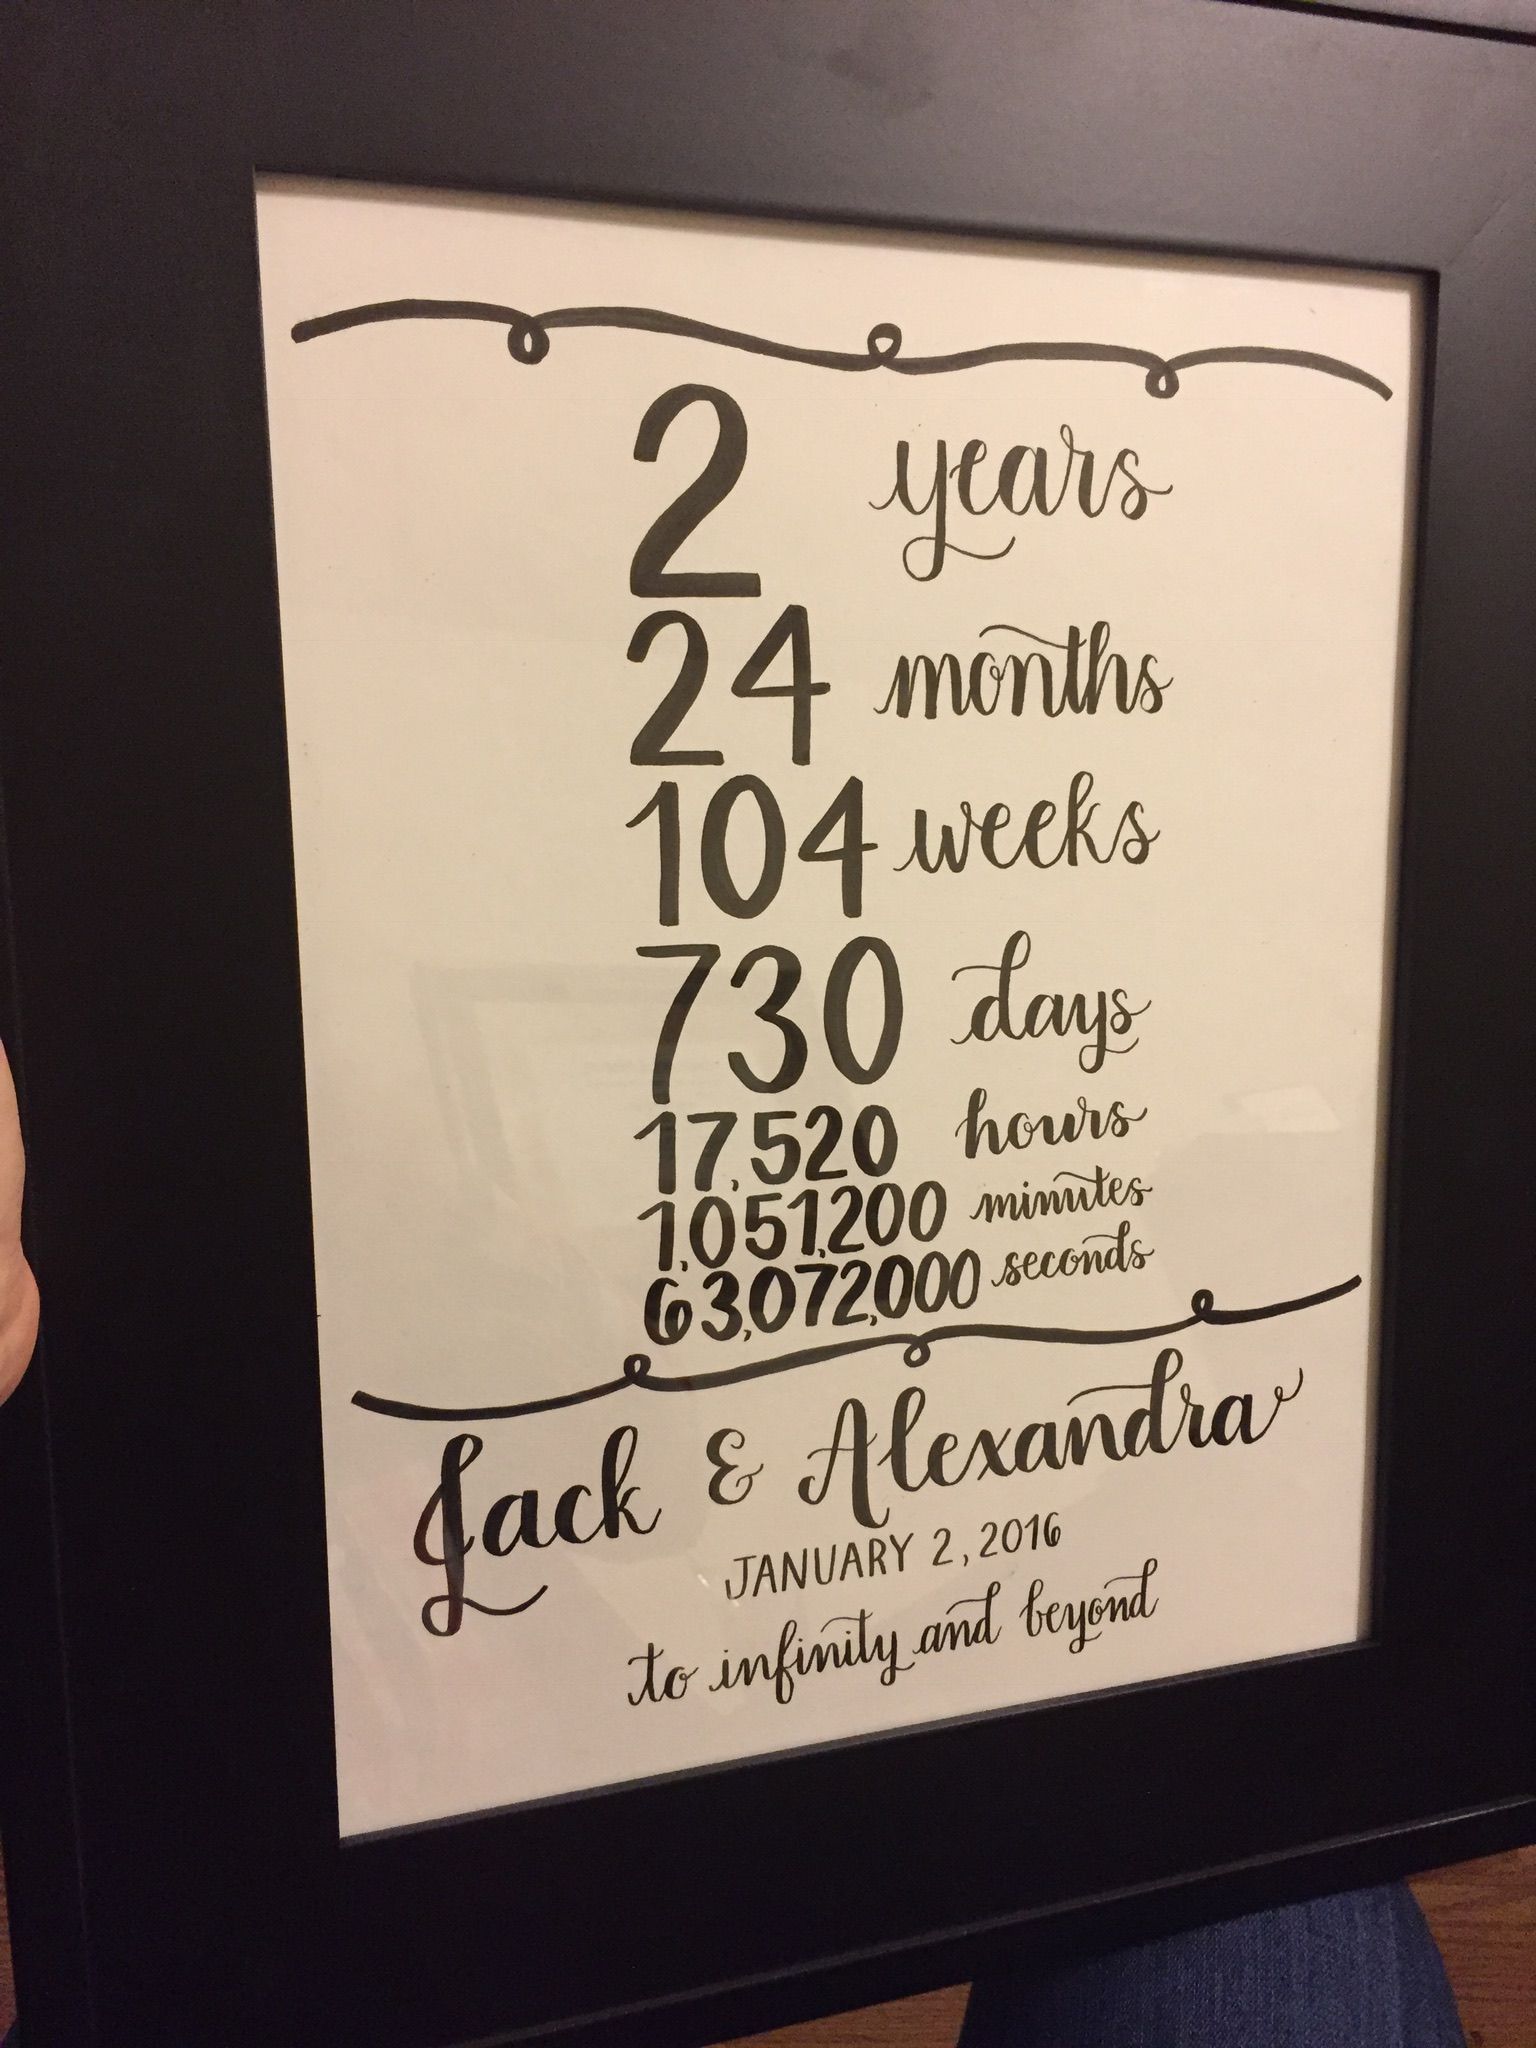 2 years
24 months
104 weeks
730 days
17,520 hours
1,051,200 minutes
63,072,000 seconds
Jack & Alexandra
JANUARY 2, 2016
to infinity and beyond